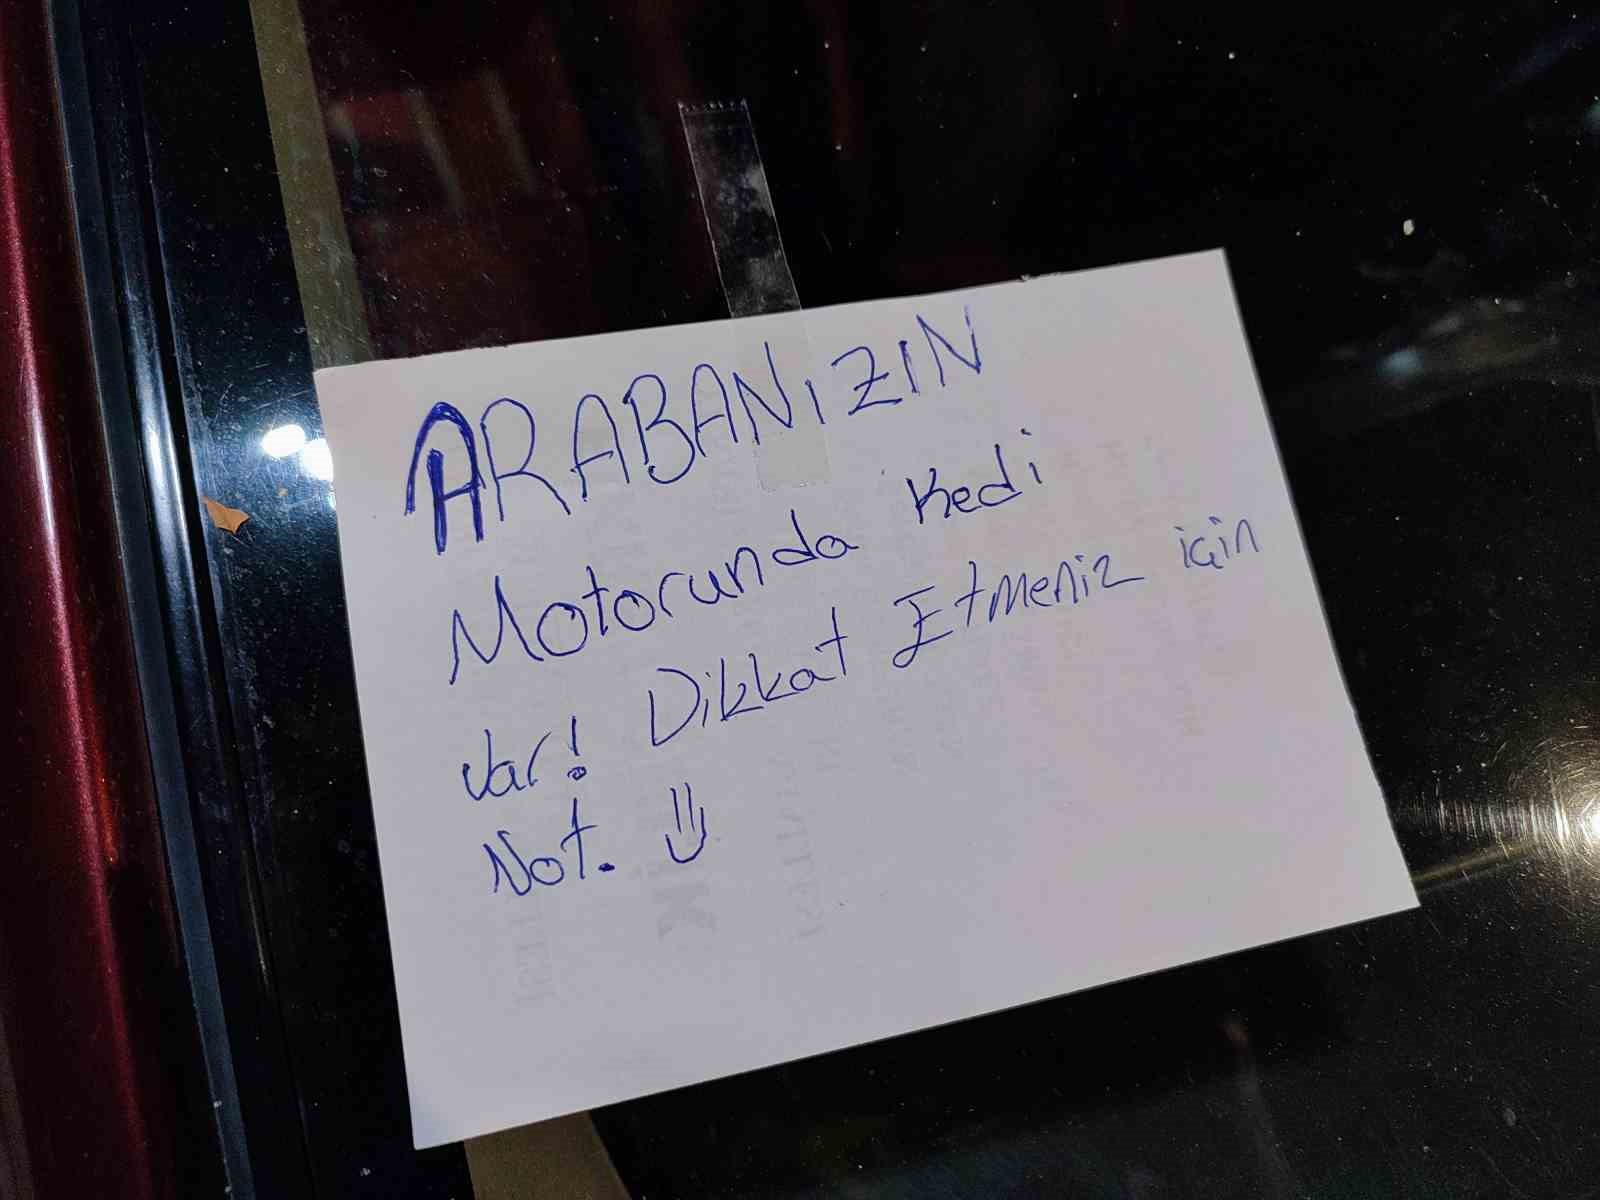 ARABANIZIN
Motorunda Kedi
Var! Dikkat Etmeniz için
Not. :)